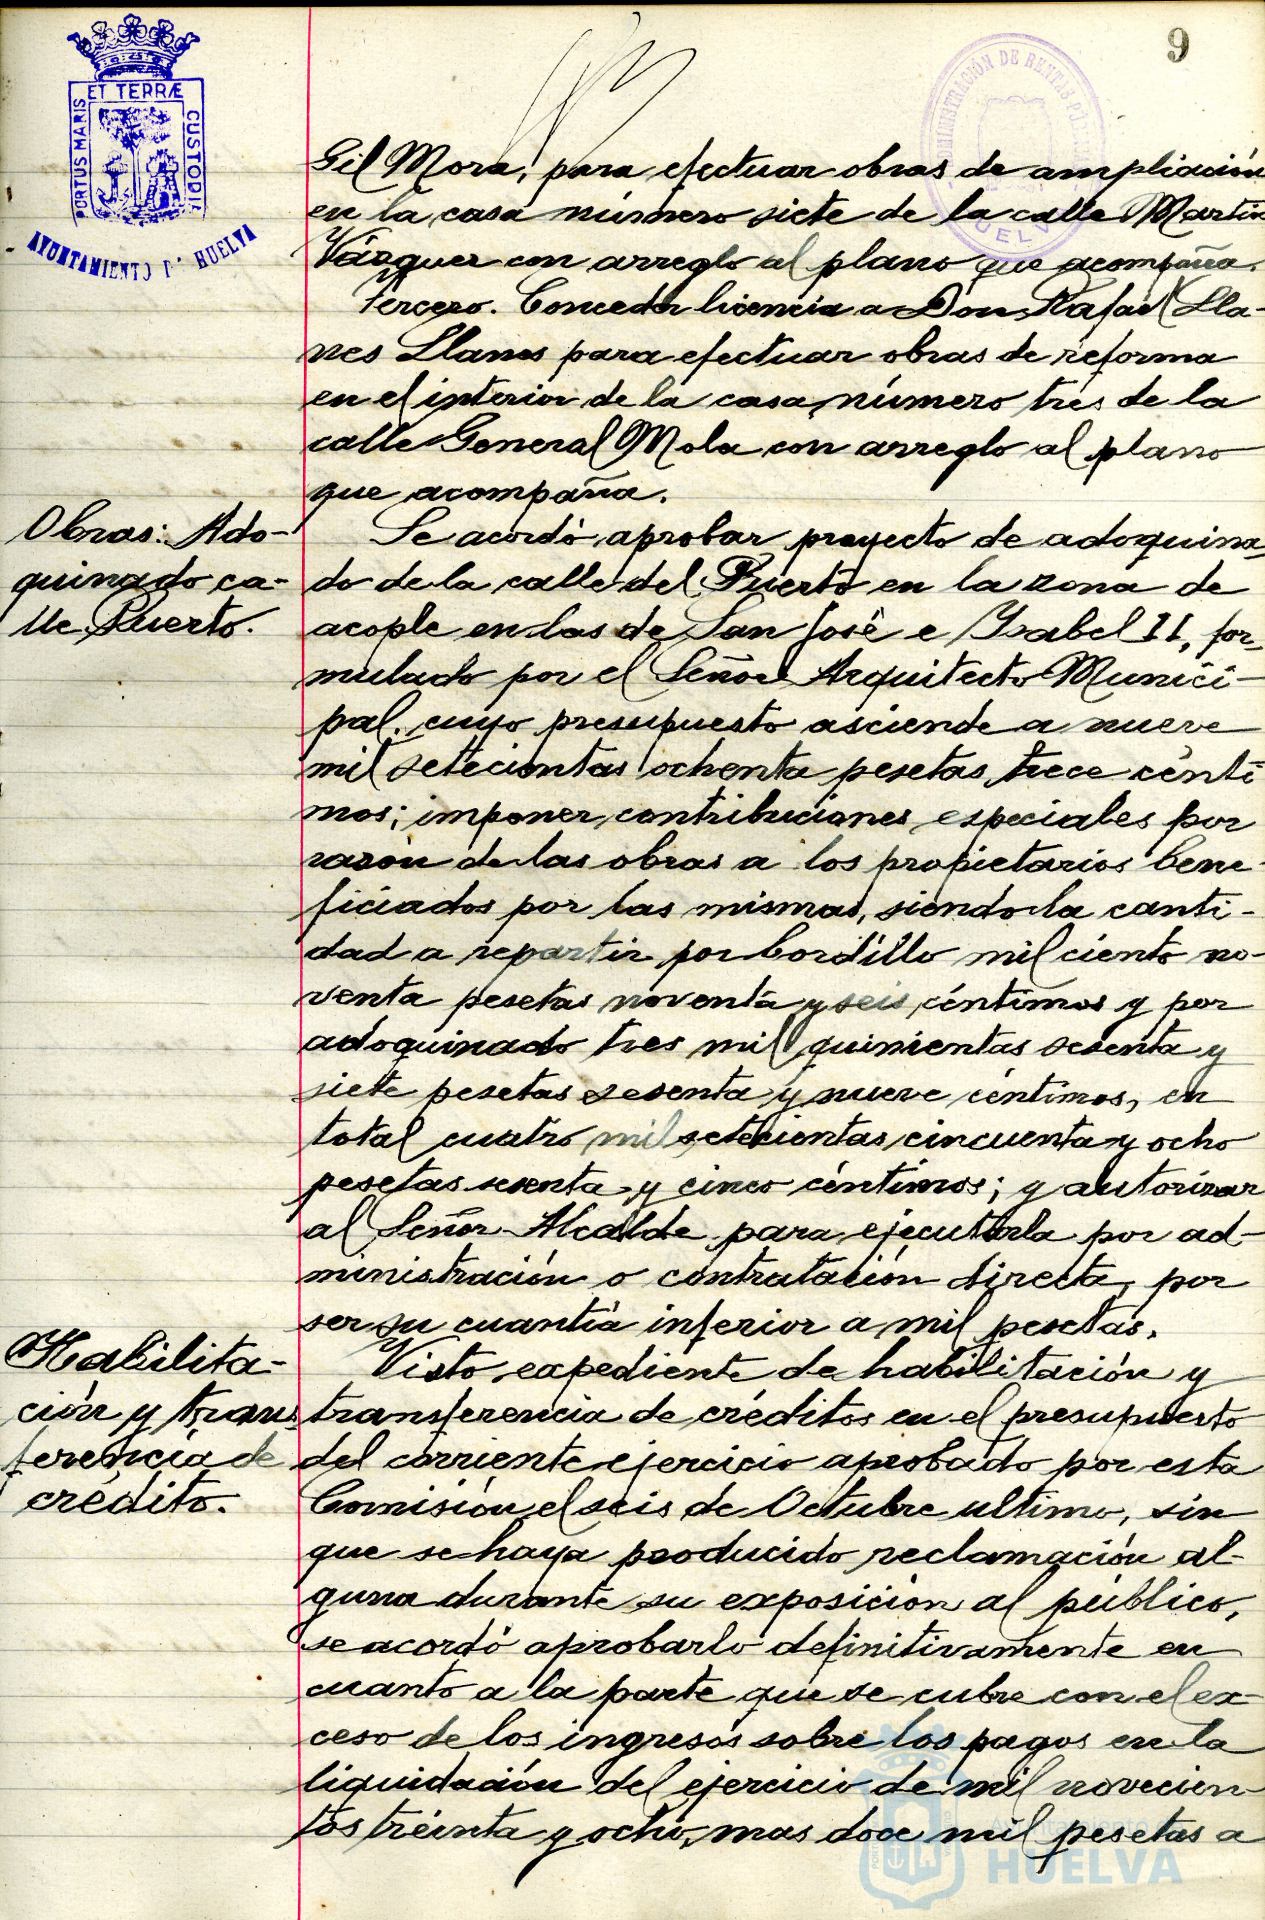 9
ET TERRÆ
PORTUS MARIS
CUSTODIA
AYUNTAMIENTO DE HUELVA
ADMINISTRACIÓN DE RENTAS PÚBLICAS
HUELVA
Gil Mora, para efectuar obras de ampliación
en la casa número siete de la calle Martin
Vázquez con arreglo al plano que acompaña.
Tercero. Conceder licencia a Don Rafael Lla-
nes Llanes para efectuar obras de reforma
en el interior de la casa número tres de la
calle General Mola con arreglo al plano
que acompaña.
Obras: Ado-
quinado ca-
lle Puerto.
Se acordó aprobar proyecto de adoquina-
do de la calle del Puerto en la zona de
acople en las de San José e Ysabel II, for-
mulado por el Señor Arquitecto Munici-
pal, cuyo presupuesto asciende a nueve
mil setecientas ochenta pesetas trece cénti
mos; imponer contribuciones especiales por
razón de las obras a los propietarios bene-
ficiados por las mismas, siendo la canti-
dad a repartir por bordillo mil ciento no-
venta pesetas noventa y seis céntimos y por
adoquinado tres mil quinientas sesenta y
siete pesetas sesenta y nueve céntimos, en
total cuatro mil setecientas cincuenta y ocho
pesetas sesenta y cinco céntimos; y autorizar
al Señor Alcalde para ejecutarla por ad-
ministración o contratación directa, por
ser su cuantía inferior a mil pesetas.
Habilita-
ción y trans
ferencia de
crédito.
Visto expediente de habilitación y
transferencia de créditos en el presupuesto
del corriente ejercicio aprobado por esta
Comisión el seis de Octubre ultimo, sin
que se haya producido reclamación al-
guna durante su exposición al público,
se acordó aprobarlo definitivamente en
cuanto a la parte que se cubre con el ex-
ceso de los ingresos sobre los pagos en la
liquidación del ejercicio de mil novecien-
tos treinta y ocho, mas doce mil pesetas a
HUELVA